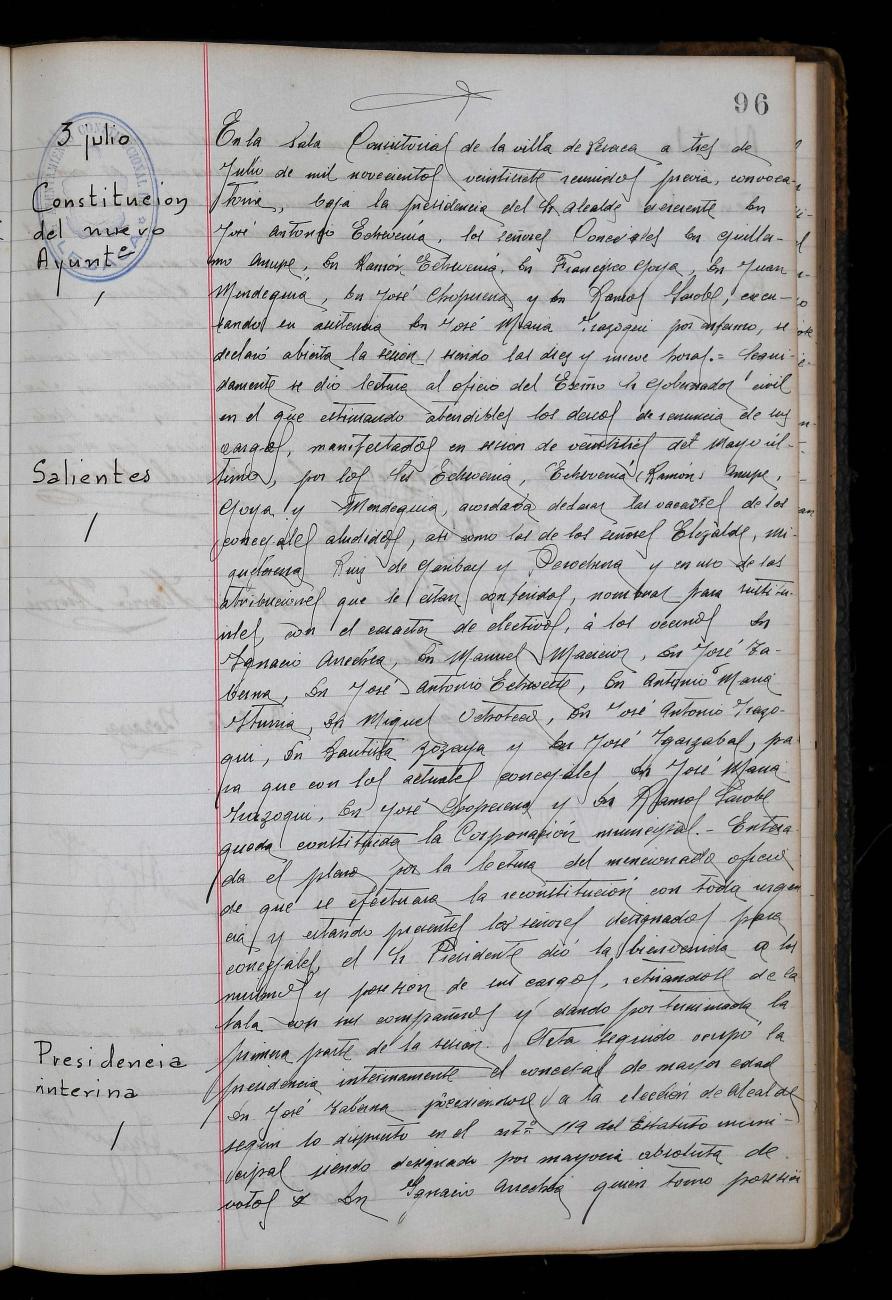 96
3 julio
Constitucion
del nuevo
Ayunte
En la Sala Consistorial de la villa de Lesaca a tres de
Julio de mil novecientos veintisiete reunidos previa, convoca-
toria, bajo la presidencia del Sr Alcalde Dn
José Antonio Echeverria, los señores Concejales Dn Guiller-
mo Dn Ramón Echeverria, Dn Francisco Goya, Dn Juan
Mendeguia, Dn José Choperena y Dn Ramos Sarobe, excu-
sando su asistencia Dn José Maria Irazoqui por enfermo, se
declaró abierta la sesion siendo las diez y nueve horas.= Segui-
damente se dio lectura al oficio del Excmo Sr Gobernador civil
en el que estimando atendibles los deseos de renuncia de sus
cargos, manifestados en sesion de veintitres de Mayo úl-
timo, por los Srs Echeverria, Echeverria (Ramón)
Goya y Mendeguia, acordada declarar las vacantes de los
concejales aludidos, asi como las de los señores Elizalde, Mi-
Ruiz de Garibay y Perochena y en uso de las
atribuciones que le estan conferidas, nombrar para sustitu-
irles, con el caracter de electivos, á los vecinos Dn
Ignacio Arrechea, Dn Manuel Dn José Ta-
berna, Dn José Antonio Dn Antonio Maria
Iturria, Dn Miguel Ochoteco, Dn José Antonio Irazo-
qui, Dn Bautista Zozaya y Dn José Igarzabal, pa-
ra que con los actuales concejales Dn José Maria
Irazoqui, Dn José Choperena y Dn Ramos Sarobe
quede constituida la Corporación municipal.- Entera-
da el pleno por la lectura del mencionado oficio
de que se efectuara la reconstitución con toda urgen
cia y estando presentes los señores designados para
concejales, el Sr Presidente dió la bienvenida a los
mismos y posesion de sus cargos, retirandose de la
Sala con sus compañeros y dando por terminada la
primera parte de la sesion. Acto seguido ocupó la
presidencia interinamente el concejal de mayor edad
Dn José Taberna procediendose a la elección de Alcalde
segun lo dispuesto en el artº 119 del Estatuto muni-
cipal siendo designado por mayoria absoluta de
votos Dn Ignacio Arrechea quien tomo posesion
Salientes
Presidencia
interina